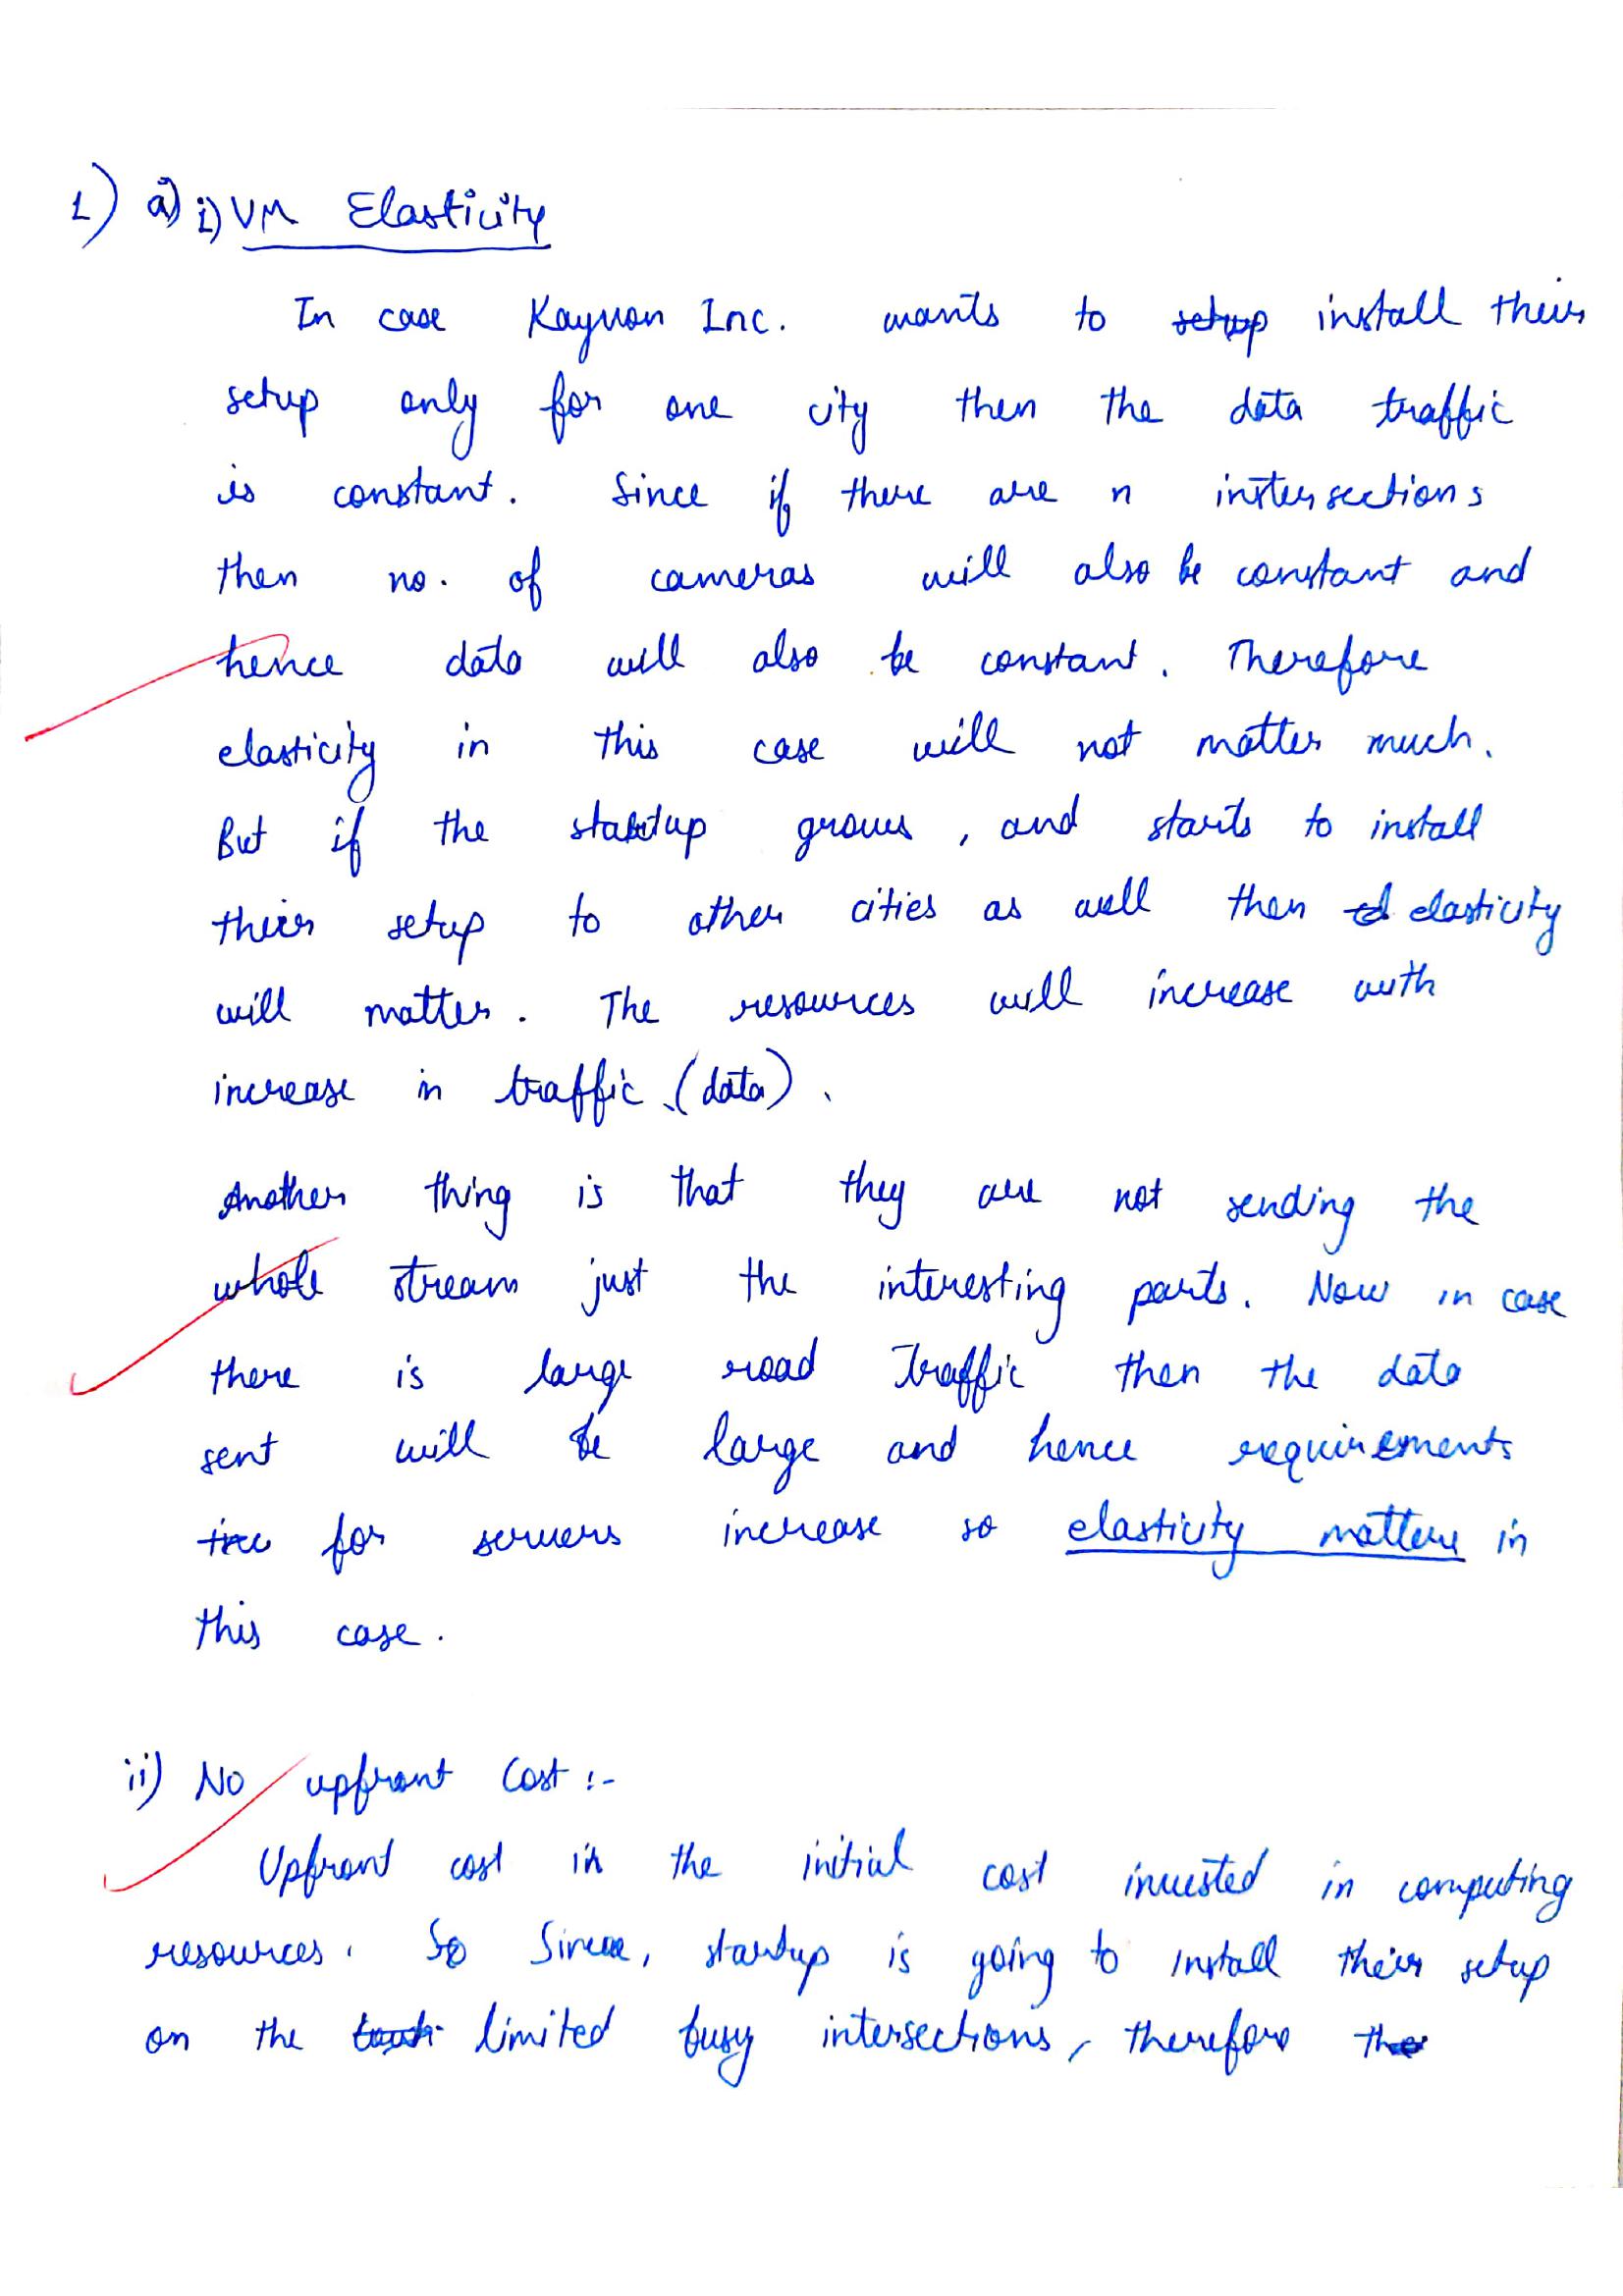 1) a) i) VM Elasticity
In case Kaynon Inc. wants to setup install their
setup only for one city then the data traffic
is constant. Since if there are n intersections
then no. of cameras will also be constant and
hence data will also be constant. Therefore
elasticity in this case will not matter much.
But if the startup grows, and starts to install
their setup to other cities as well then el elasticity
will matter. The resources will increase with
increase in traffic (data).
Another thing is that they are not sending the
whole stream just the interesting parts. Now in case
there is large road Traffic then the data
sent will be large and hence requirements
inc for servers increase so elasticity matters in
this case.
ii) No upfront Cost :-
Upfront cost is the initial cost invested in computing
resources. So Since, startup is going to install their setup
on the limited busy intersections, therefore the